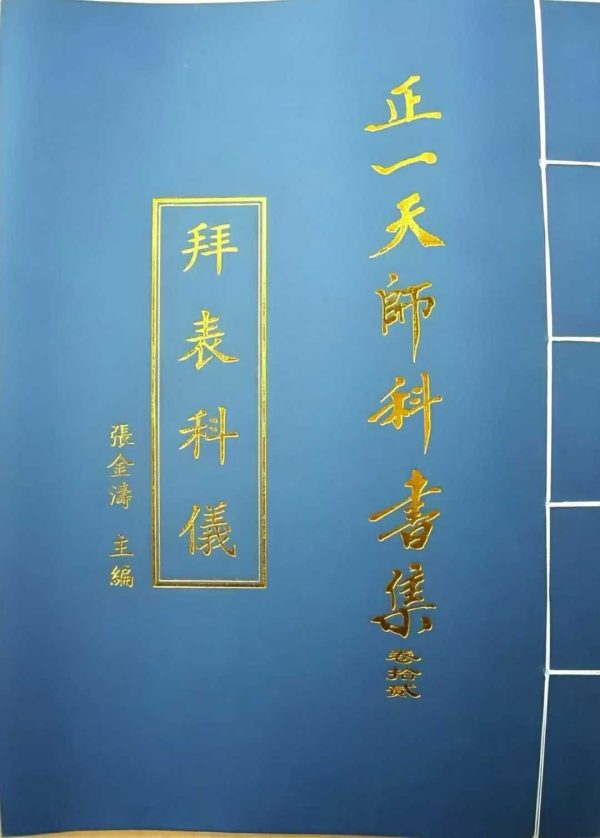 正一天師科書集
卷拾貳
拜表科儀
張金濤 主編